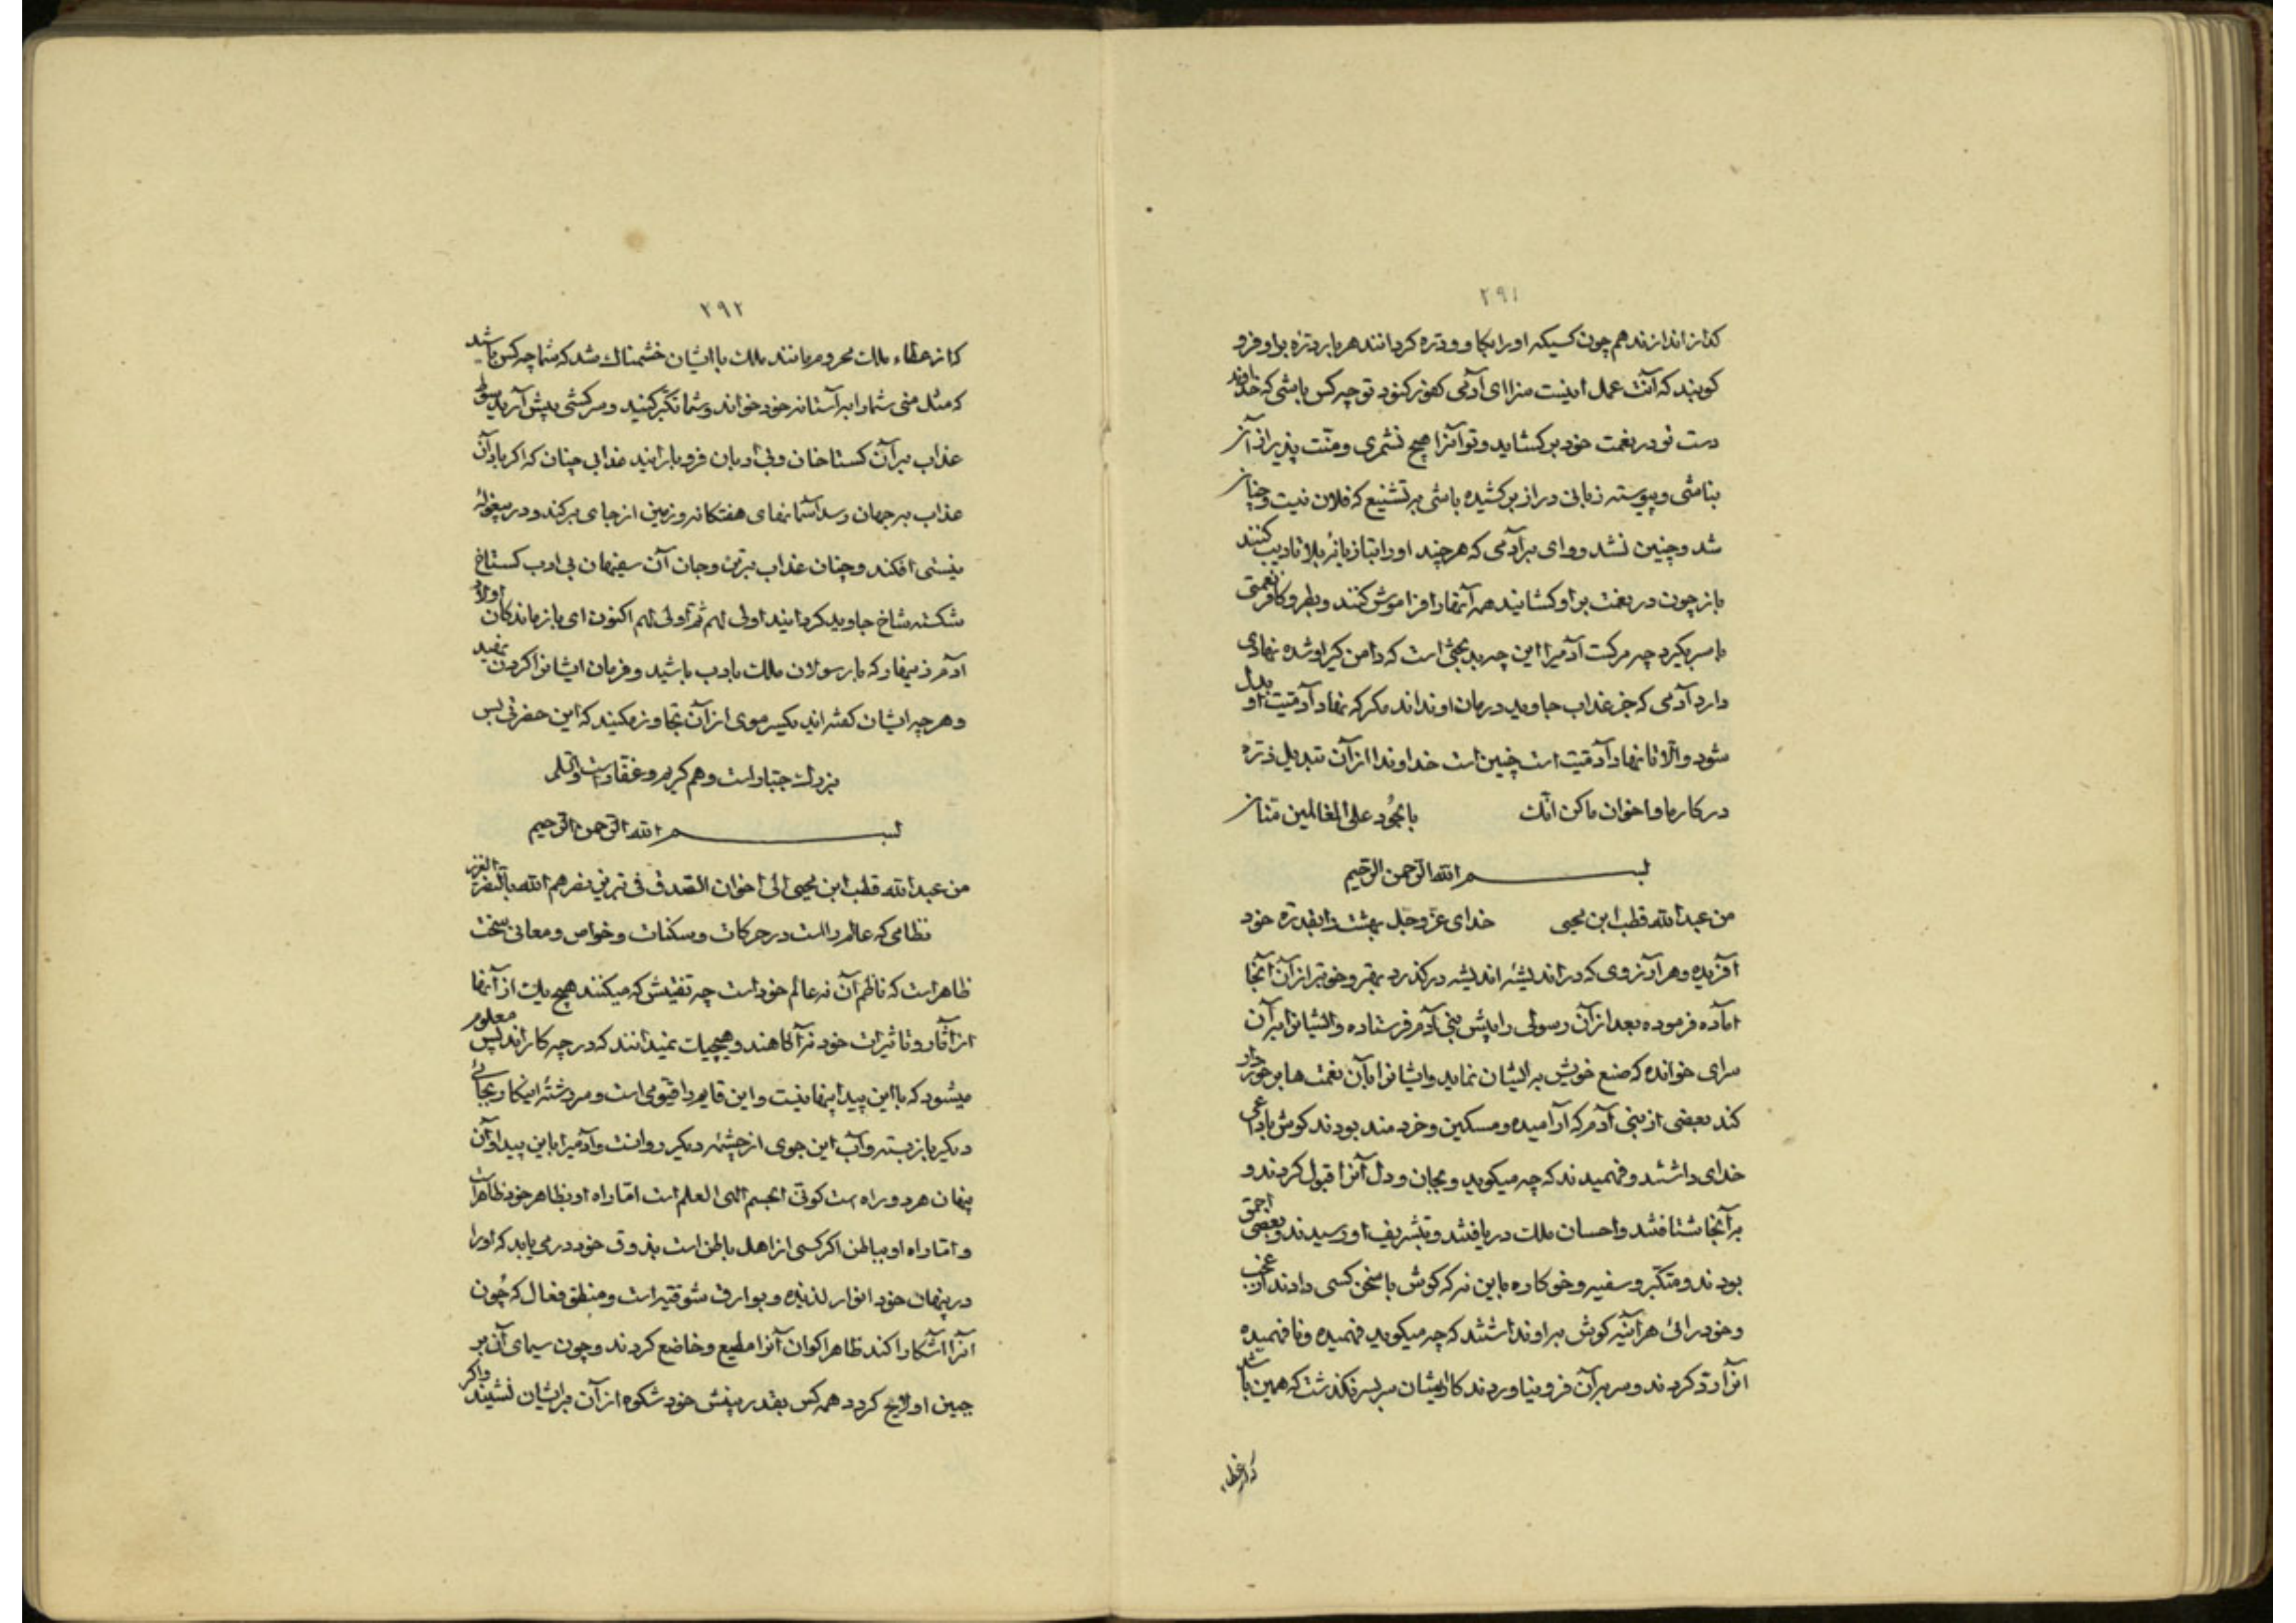 ۲۹۱
کداز اندازند هم چون کسیکه او را بکاو و دره کردانند هر بار دره براو فرو
کوبند که آنت عمل اینست سزا ای آدمی کفور کنود تو چه کس باشی که خداوند
دست تو در نعمت خود بر کشاید و تو آنرا هیچ نشمری و منّت پذیر از آن
نباشی و پیوسته زبانی دراز بر کشیده باشی بر تشنیع که فلان نیست و چنان
شد و چنین نشد و وای بر آدمی که هر چند او را بتازیانهٔ بلا تادیب کنند
باز چون در نعمت بر او کشایند همه آنها را فراموش کنند و بطر و کافر نعمتی
با سر کیرد چه مرکت آدمیرا این چه بدبختی است که دامن کیر او شده نهادی
دارد آدمی که جز عذاب جاوید درمان او نداند مکر که نهاد آدمیّت او بدل
شود و الّا تا نهاد آدمیّت است چنین است خداوندا از آن تبدیل ذرّه
در کار ما و اخوان ما کن انّک بالجُود علی العالمین منّان
بسم الله الرّحمن الرّحیم
من عبد الله قطب ابن یحیی خدای عزّ و جلّ بهشت را بقدرة خود
آفریده و هر آرزوی که در اندیشهٔ اندیشه در کذرد بهتر و خوبتر از آن آنجا
اماده فرموده بعد از آن رسولی را پیش بنی آدم فرستاده و ایشانرا بر آن
سرای خوانده که صنع خویش بر ایشان نماید و ایشانرا بآن نعمت ها برخوردار
کند بعضی از بنی آدم که آرامیده و مسکین و خرد مند بودند کوش با داعی
خدای داشتند و فهمیدند که چه میکوید و بجان و دل آنرا قبول کردند و
بر آنجا شتافتند و احسان ملک دریافتند و بتشریف او رسیدند و بعضی احمق
بودند و متکبّر و سفیه و خو کاره باین نه که کوش با سخن کسی دادند از عجب
و خود رائی هر آینه کوش بر او نداشتند که چه میکوید فهمیده و نا فهمیده
انرا ردّ کردند و سر بر آن فرو نیاوردند کار ایشان سر بسر نکذشت که همین باشد
که از عطاء
۲۹۲
که از عطاء ملک محروم مانند ملک با ایشان خشمناک شد که شما چه کس باشید
که مثل منی شما را بر آستانه خود خواند و شما تکبّر کنید و سرکشی پیش آرید
عذاب بر آن کستاخان و بی ادبان فرو بارانید عذابی چنان که اکر باد آن
عذاب بر جهان وسد آسمانهای هفتکانه و زمین از جای برکند و در بیغوله
نیستی افکند و چنان عذاب بر تن و جان آن سفیهان بی ادب کستاخ
شکسته شاخ جاوید کردانید اولی لهم ثم اولی لهم اکنون ای بازماندکان اولاد
آدم زینهار که با رسولان ملک بادب باشید و فرمان ایشانرا کردن نهید
و هر چه ایشان کفته اند یکسر موی از آن تجاوز مکنید که این حضرتی بس
بزرک جبّار است و هم کریم و غفّار است و السّلم
بسم الله الرّحمن الرّحیم
من عبد الله قطب ابن یحیی الی اخوان الصّدق فی تبریز نصرهم الله بالنّصر العزیز
نظامی که عالم راست در حرکات و سکنات و خواص و معانی سخت
ظاهر است که ناظم آن نه عالم خود است چه تفتیش که میکنند هیچ یک از آنها
از آثار و تاثیرات خود نه آکاهند و هیچیک نمیدانند که در چه کارند پس معلوم
میشود که با این پیدا پنهانیست و این قایم را قیّومی است و سر رشتهٔ اینکار بجائی
دیکر باز بسته و آب این جوی از چشمهٔ دیکر روانست و آدمیرا باین پیدا و آن
پنهان هر دو راه است کوئی الجسم الی العلم است امّا راه او بظاهر خود ظاهر است
و امّا راه او بباطن اکر کسی از اهل باطن است بذوق خود در می یابد که او را
در پنهان خود انوار لذیذه و بوارق شوقیّه است و منطق فعال که چُون
آنرا آشکارا کند ظاهر اکوان آنرا مطیع و خاضع کردند و چون سیمای آن بر
جبین او لایح کردد همه کس بقدر بینش خود شکوه از آن بر ایشان نشیند و اکر